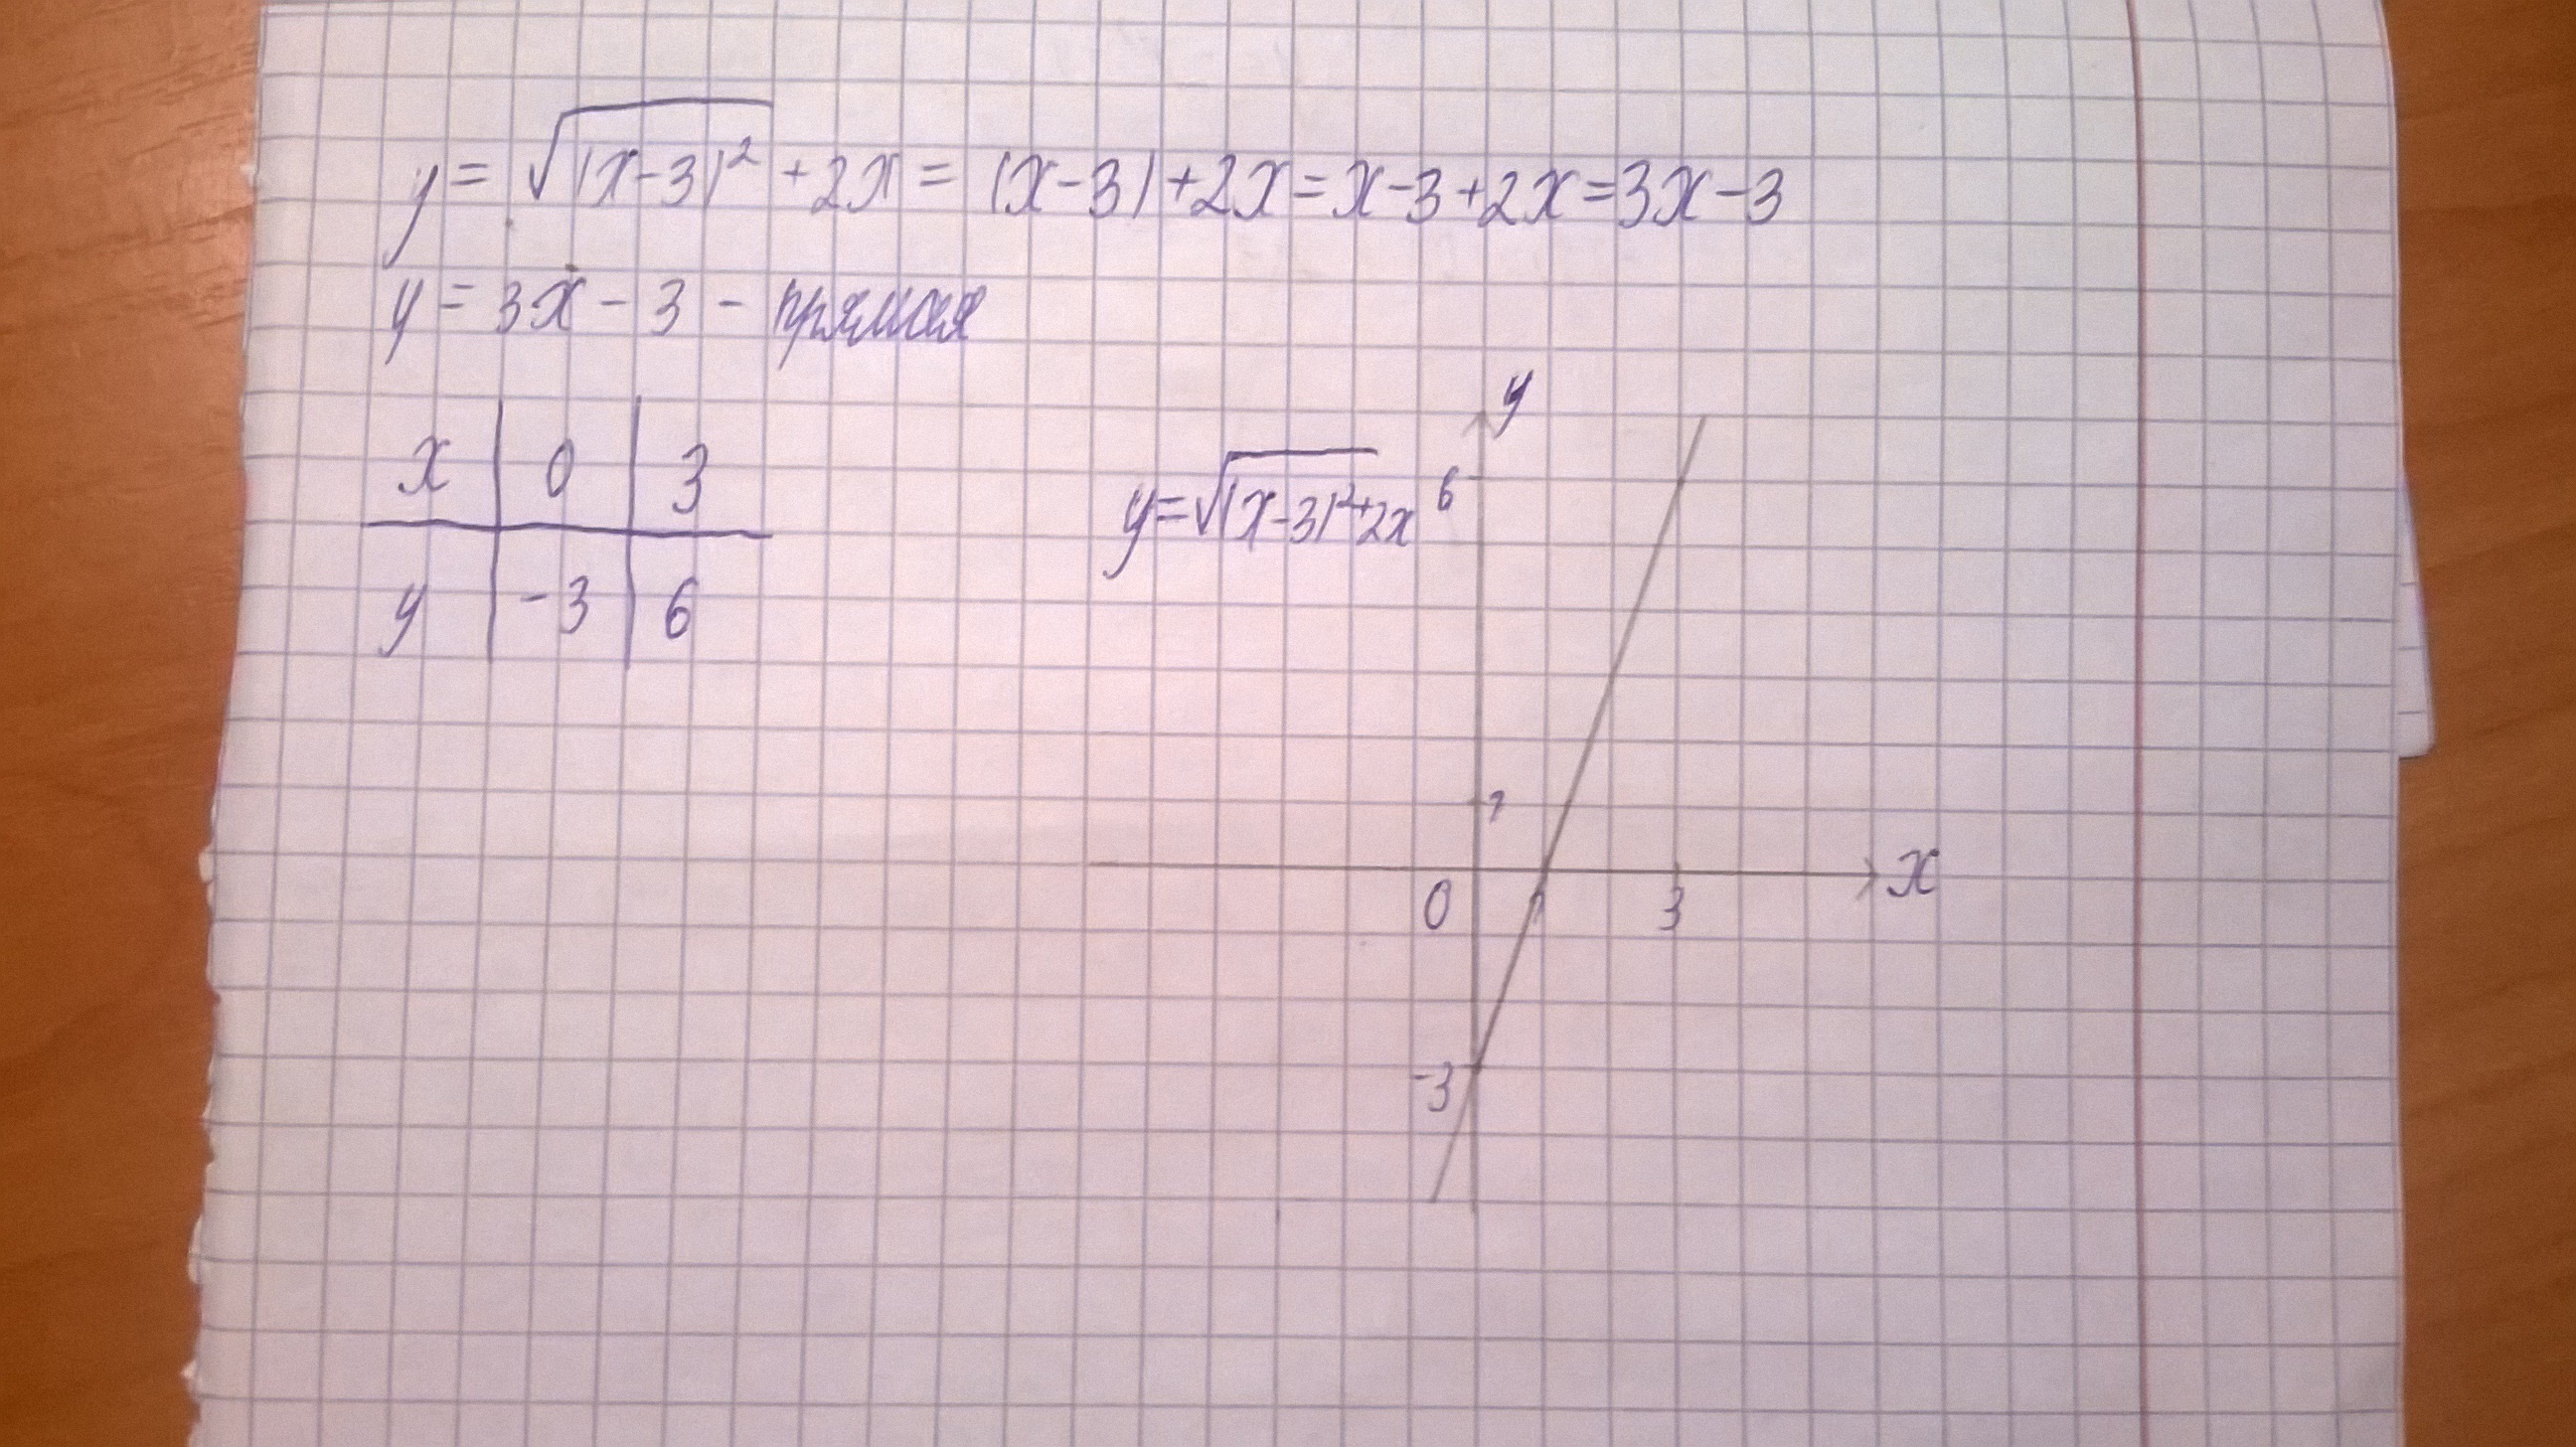 y = √(x-3)² + 2x = (x-3) + 2x = x-3+2x = 3x-3
y = 3x - 3 - прямая
x 0 3
y -3 6
y
y = √(x-3)² + 2x
6
1
0 1 3 x
-3